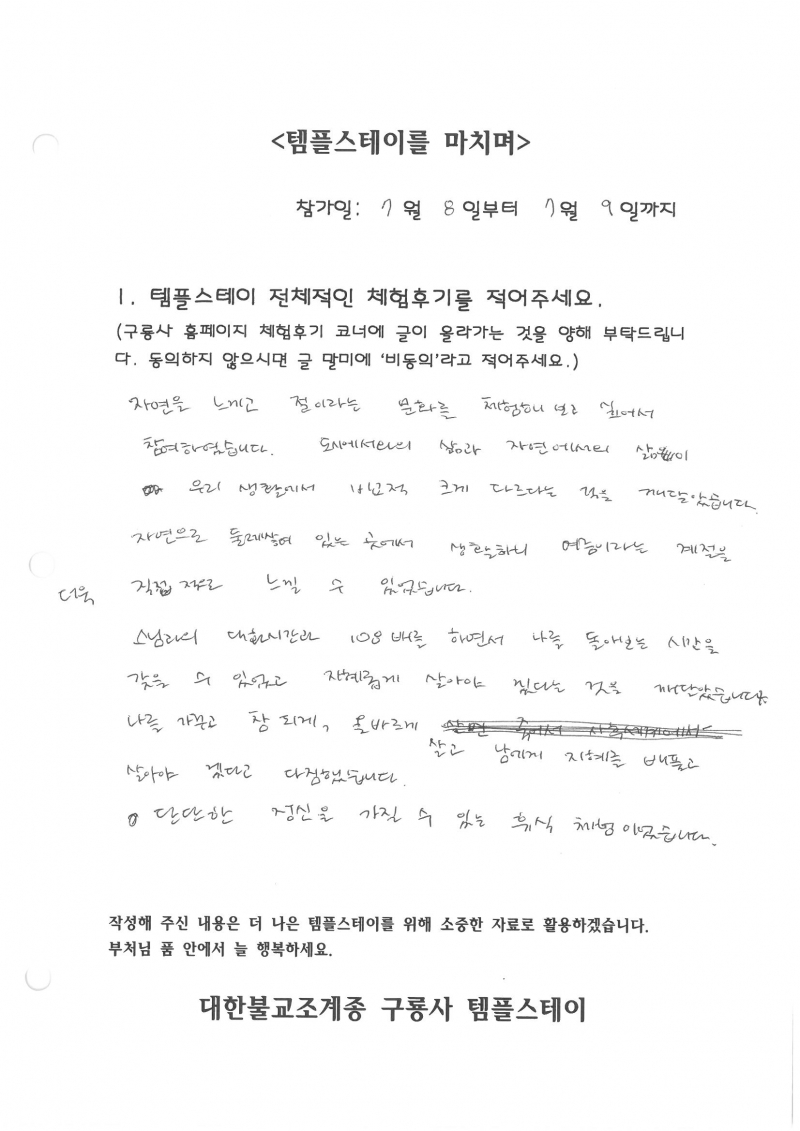 <템플스테이를 마치며>
참가일: 7월 8일부터 7월 9일까지
1. 템플스테이 전체적인 체험후기를 적어주세요.
(구룡사 홈페이지 체험후기 코너에 글이 올라가는 것을 양해 부탁드립니
다. 동의하지 않으시면 글 말미에 '비동의'라고 적어주세요.)
자연을 느끼고 절이라는 문화를 체험해 보고 싶어서
참여하였습니다. 도시에서와의 삶과 자연에서의 삶이
우리 생활에서 크게 다르다는 것을 깨달았습니다.
자연으로 둘레쌓여 있는 곳에서 생활하니 여름이라는 계절을
더욱 직접 느낄 수 있었습니다.
스님과의 대화시간과 108배를 하면서 나를 돌아보는 시간을
갖을 수 있었고 지혜롭게 살아야 된다는 것을 깨달았습니다.
나를 가꾸고 참 되게, 올바르게
살고 남에게 지혜를 베풀고
살아야 겠다고 다짐했습니다.
단단한 정신을 가질 수 있는 휴식 체험이었습니다.
작성해 주신 내용은 더 나은 템플스테이를 위해 소중한 자료로 활용하겠습니다.
부처님 품 안에서 늘 행복하세요.
대한불교조계종 구룡사 템플스테이